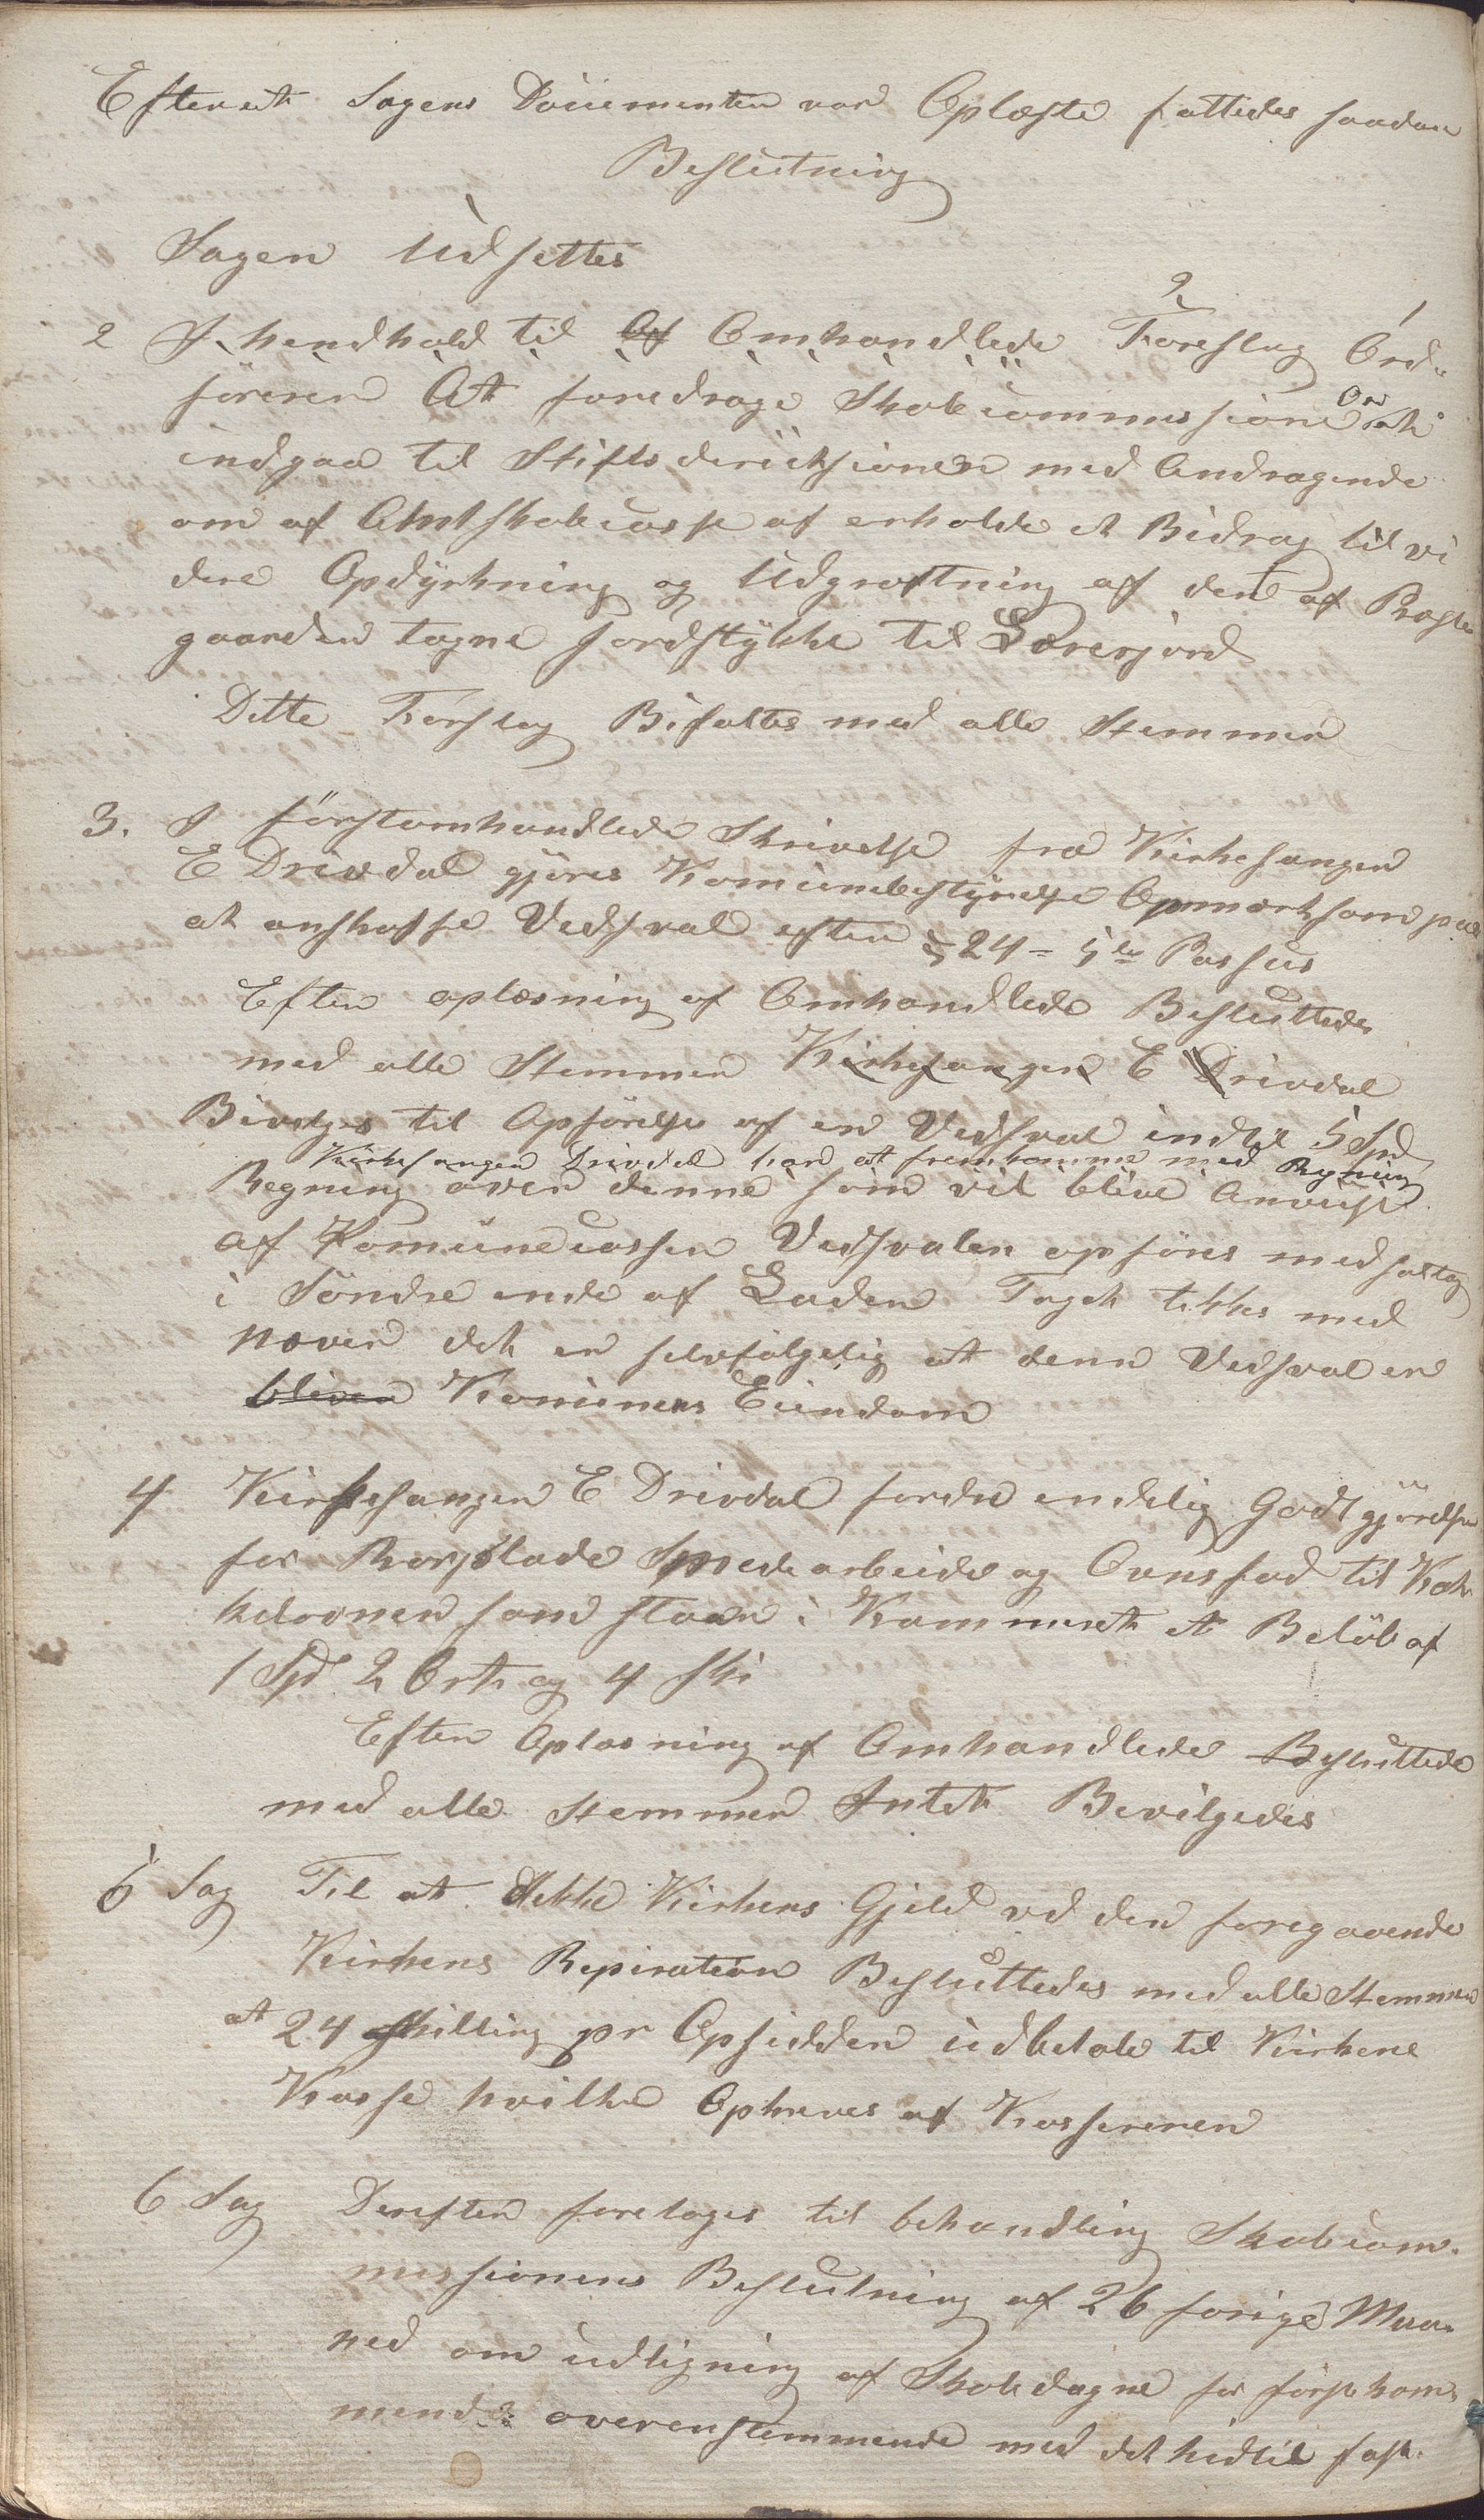 Efterat Sagens Documenter var Oplæste fattedes saadan
Beslutning
Sagen Udsettes
2 I henhold til Af Omhandlede Foreslog Ord-
föreren At foredrage Skolecommissionen at
indgaa til Stiftsdirektionen med Andragende
om af Amtskolecasse at erholde et Bidrag til vi
dere Opdyrkning og Udgrøftning af den af Præste
gaarden tagne Jordstykke til Lærerjord
Dette Forslag Bifaltes med alle Stemmer
3. I förstomhandlede Skrivelse fra Kirkesanger
E Drivdal gjöres Komunebestyrelse Opmærksom paa
at anskaffe Vedsval efter § 24 - 5te Passus
Efter oplæsning af Omhandlede Besluttedes
med alle Stemmer Kirkesanger E Drivdal
Bivilges til Opförelse af en Vedsval indtil 5 Spd
Kirkesanger Drivdal har at fremkomme med Regning
Regning over denne som vil blive Anvist
af Komunecassen Vedsvalen opföres med
i Söndre ende af Laden Taget tekkes med
næver det er selvfölgelig at denne Vedsval er
bliver Komunens Eiendom
4 Kirkesanger E Drivdal fordre endelig Godtgjörelse
for Rorplade Smedearbeide og Ovnsfod til Kak-
kelovnen som staar i Kammeret et Belöb af
1 Spd 2 Ort og 4 ski
Efter Oplæsning af Omhandlede Besluttede
med alle stemmer Intet Bevilgedes
5 Sag Til at dekke Kirkens Gjeld ved den foregaaende
Kirkens Repiration Besluttedes med alle Stemmer
at 24 skilling pr Opsidder udbetale til Kirkens
Kasse hvilke Opkreves af Kassereren
6 Sag Derefter foretoges til behandling Skolecom-
missionens Beslutning af 26 forige Maa-
ned om udligning af Skoledagne for förstkom-
mende overenstemmende med det hidtil fast-